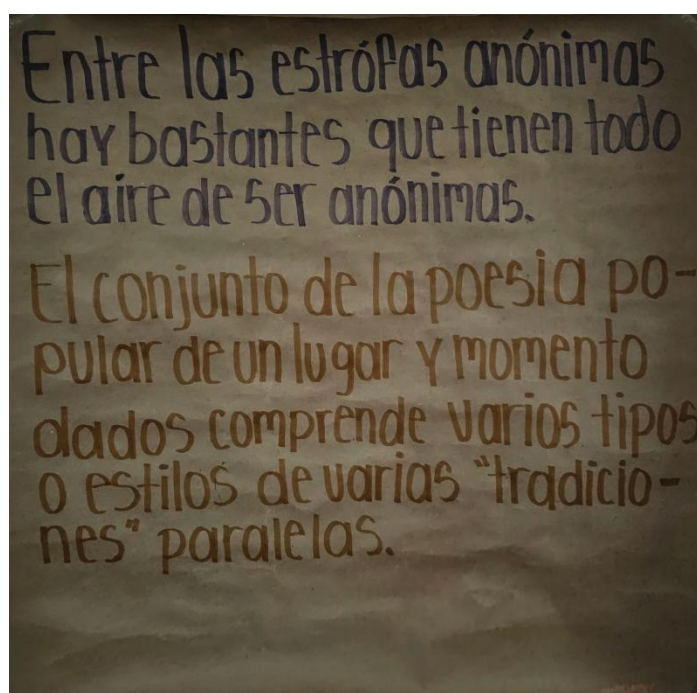 Entre las estrófas anónimas
hay bastantes que tienen todo
el aire de ser anónimas.
El conjunto de la poesia po-
pular de un lugar y momento
dados comprende varios tipos
o estilos de varias "tradicio-
nes" paralelas.